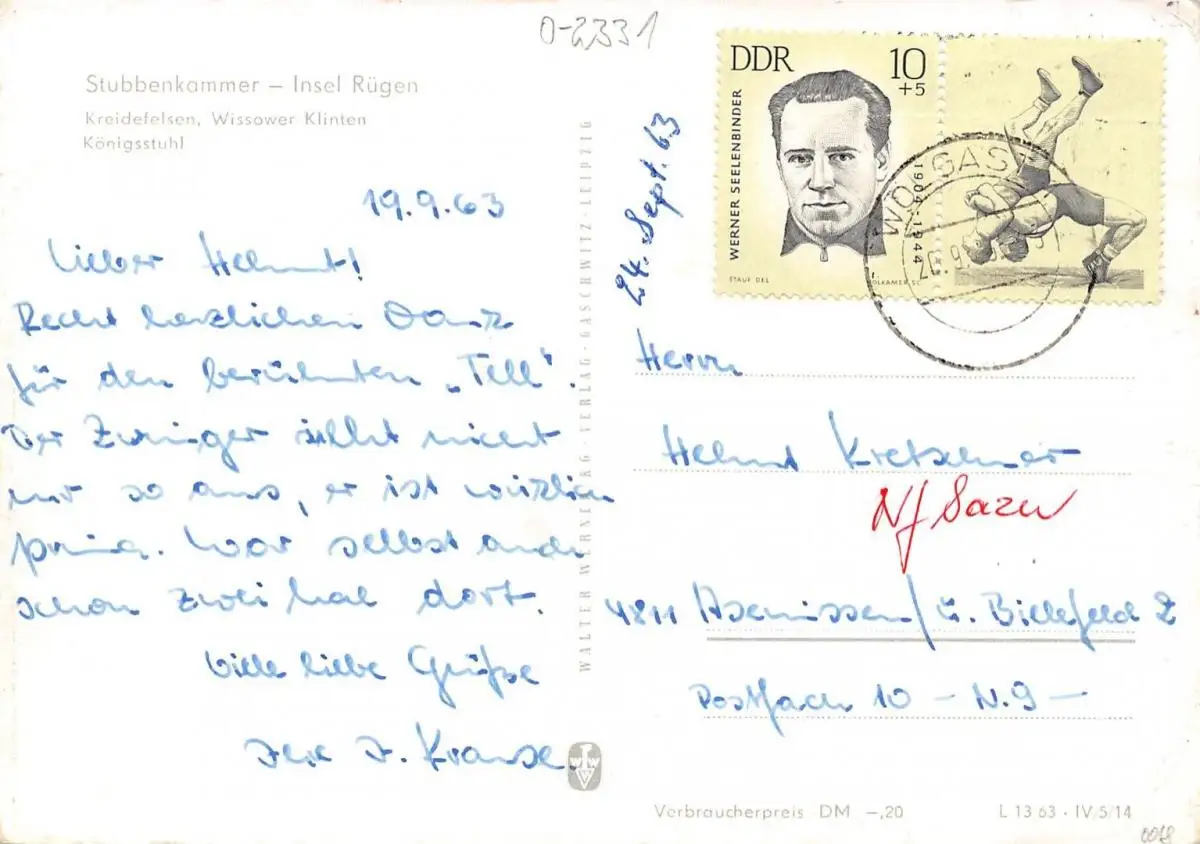 0-2331
Stubbenkammer – Insel Rügen
Kreidefelsen, Wissower Klinten
Königsstuhl
19.9.63
Lieber Helmut!
Recht herzlichen Dank
für den berühmten „Tell".
Der Zwinger sieht nicht
nur so aus, er ist wirklich
prima. War selbst auch
schon zwei mal dort.
Viele liebe Grüße
Ihre I. Krause.
WALTER WERNER KG · VERLAG · GASCHWITZ-LEIPZIG
24. Sept. 63
DDR
10
+5
WERNER SEELENBINDER
1904-1944
STAUF DEL
VOLKAMER SC
WOLGAST
Herrn
Helmut Kretschmer
4811 Asemissen/ü. Bielefeld 2
Postfach 10 – N.9 –
Verbraucherpreis DM –,20
L 13 63 · IV/5/14